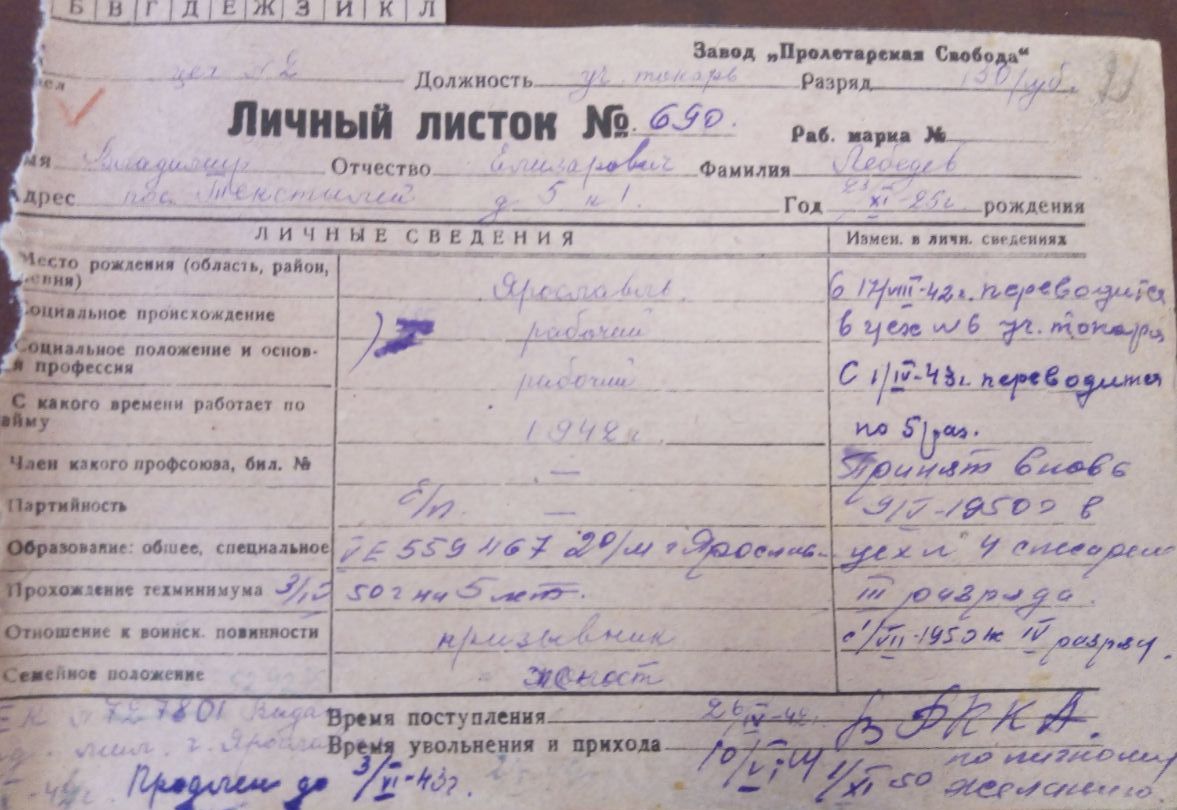 Б В Г Д Е Ж З И К Л
Завод „Пролетарская Свобода“
цех № 2 Должность уч. токарь Разряд 130 руб.
Личный листок № 690.
Раб. марка №
мя Владимир Отчество Елизарович Фамилия Лебедев
Адрес пос. Текстилей д 5 к 1. Год 23/XI-25г. рождения
ЛИЧНЫЕ СВЕДЕНИЯ Измен. в личн. сведениях
Место рождения (область, район,
Ярославль. с 17/VIII-42г. переводится
Социальное происхождение рабочий в цех № 6 уч. токаря
Социальное положение и основ-
я профессия рабочий С 1/IV-43г переводится
С какого времени работает по
айму 1942г. по 5/раз.
Член какого профсоюза, бил. № — Принят вновь
Партийность б/п. — 9/V-1950г в
Образование: общее, специальное VE 559467 20/м г Ярослав- цех № 4 слесарем
Прохождение техминимума 3/IV 50г на 5 лет. III разряда.
Отношение к воинск. повинности призывник с 1/VII-1950г IV разряд.
Семейное положение холост
№ 727801 Выда Время поступления 26/IV-42г. В РККА.
мил. г. Яросла Время увольнения и прихода 10/VI 1/XI 50 по личному
желанию
Продлен до 3/VI-43г.